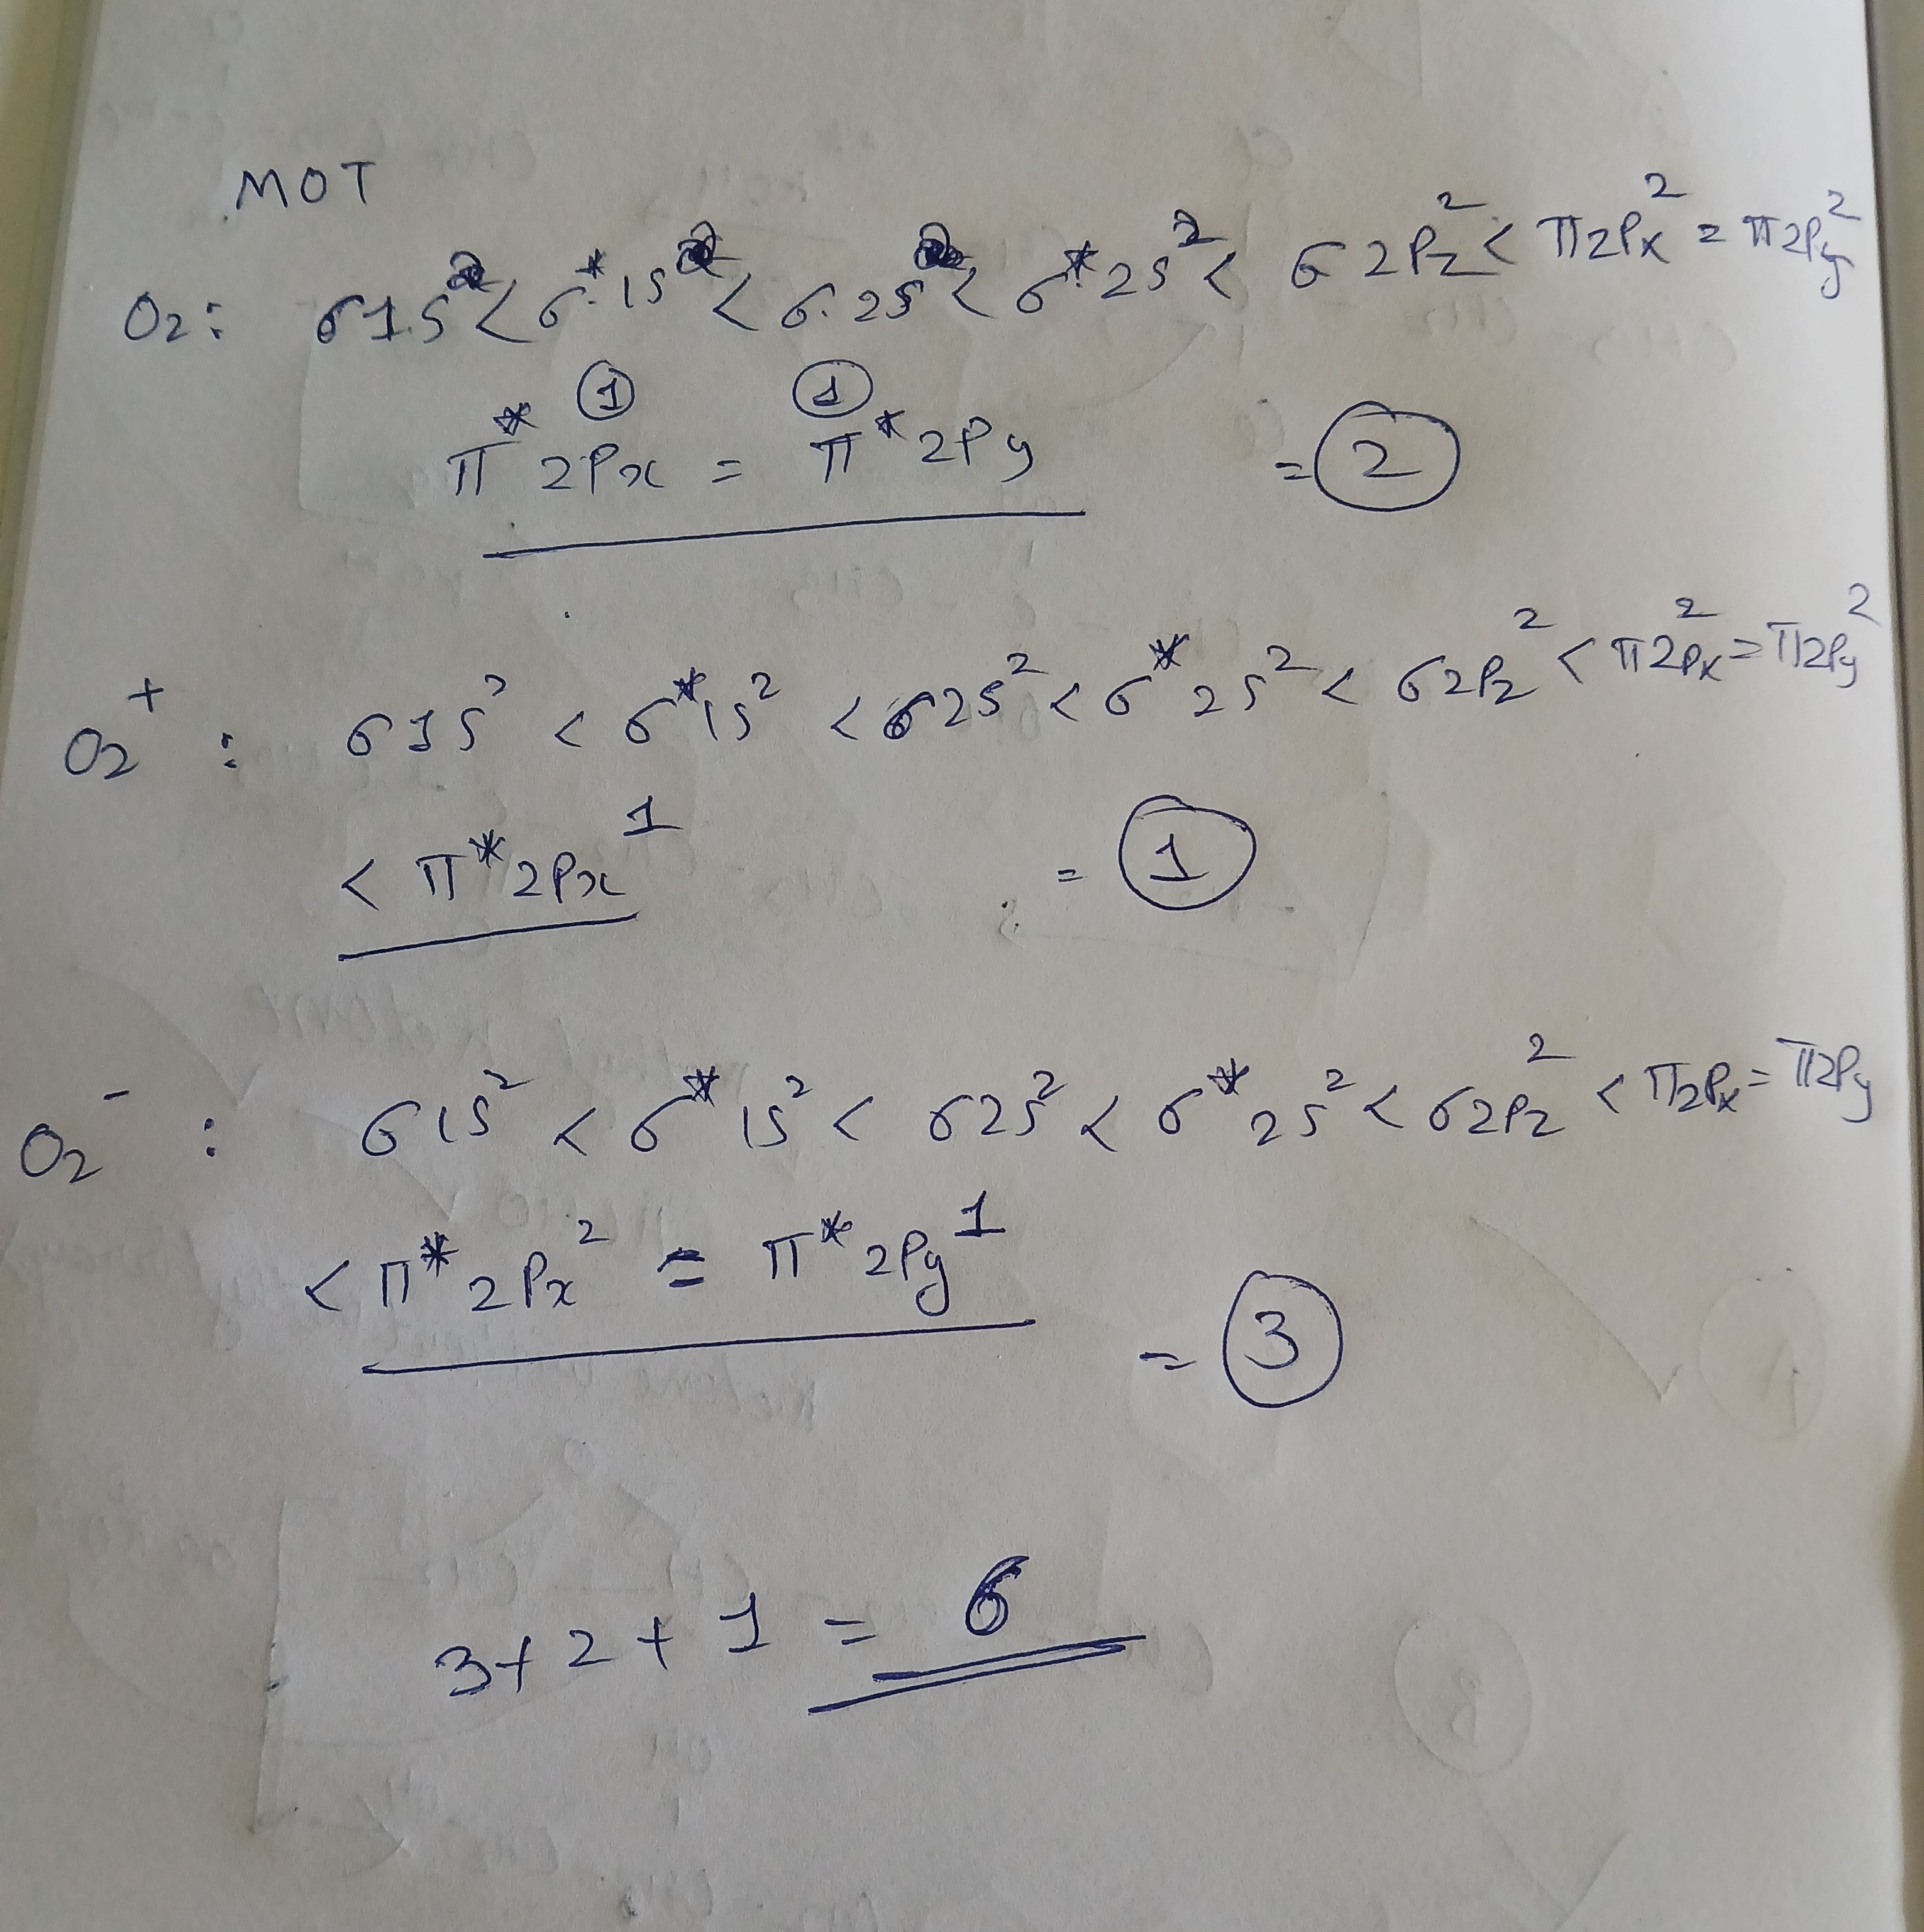 MOT
O₂: σ1s² < σ*1s² < σ2s² < σ*2s² < σ2Pz² < π2Px² = π2Py²
π*2Px① = π*2Py① = ②
O₂⁺ : σ1s² < σ*1s² < σ2s² < σ*2s² < σ2Pz² < π2Px² = π2Py²
< π*2Px¹ = ①
O₂⁻ : σ1s² < σ*1s² < σ2s² < σ*2s² < σ2Pz² < π2Px = π2Py
< π*2Px² = π*2Py¹ = ③
3+2+1 = 6